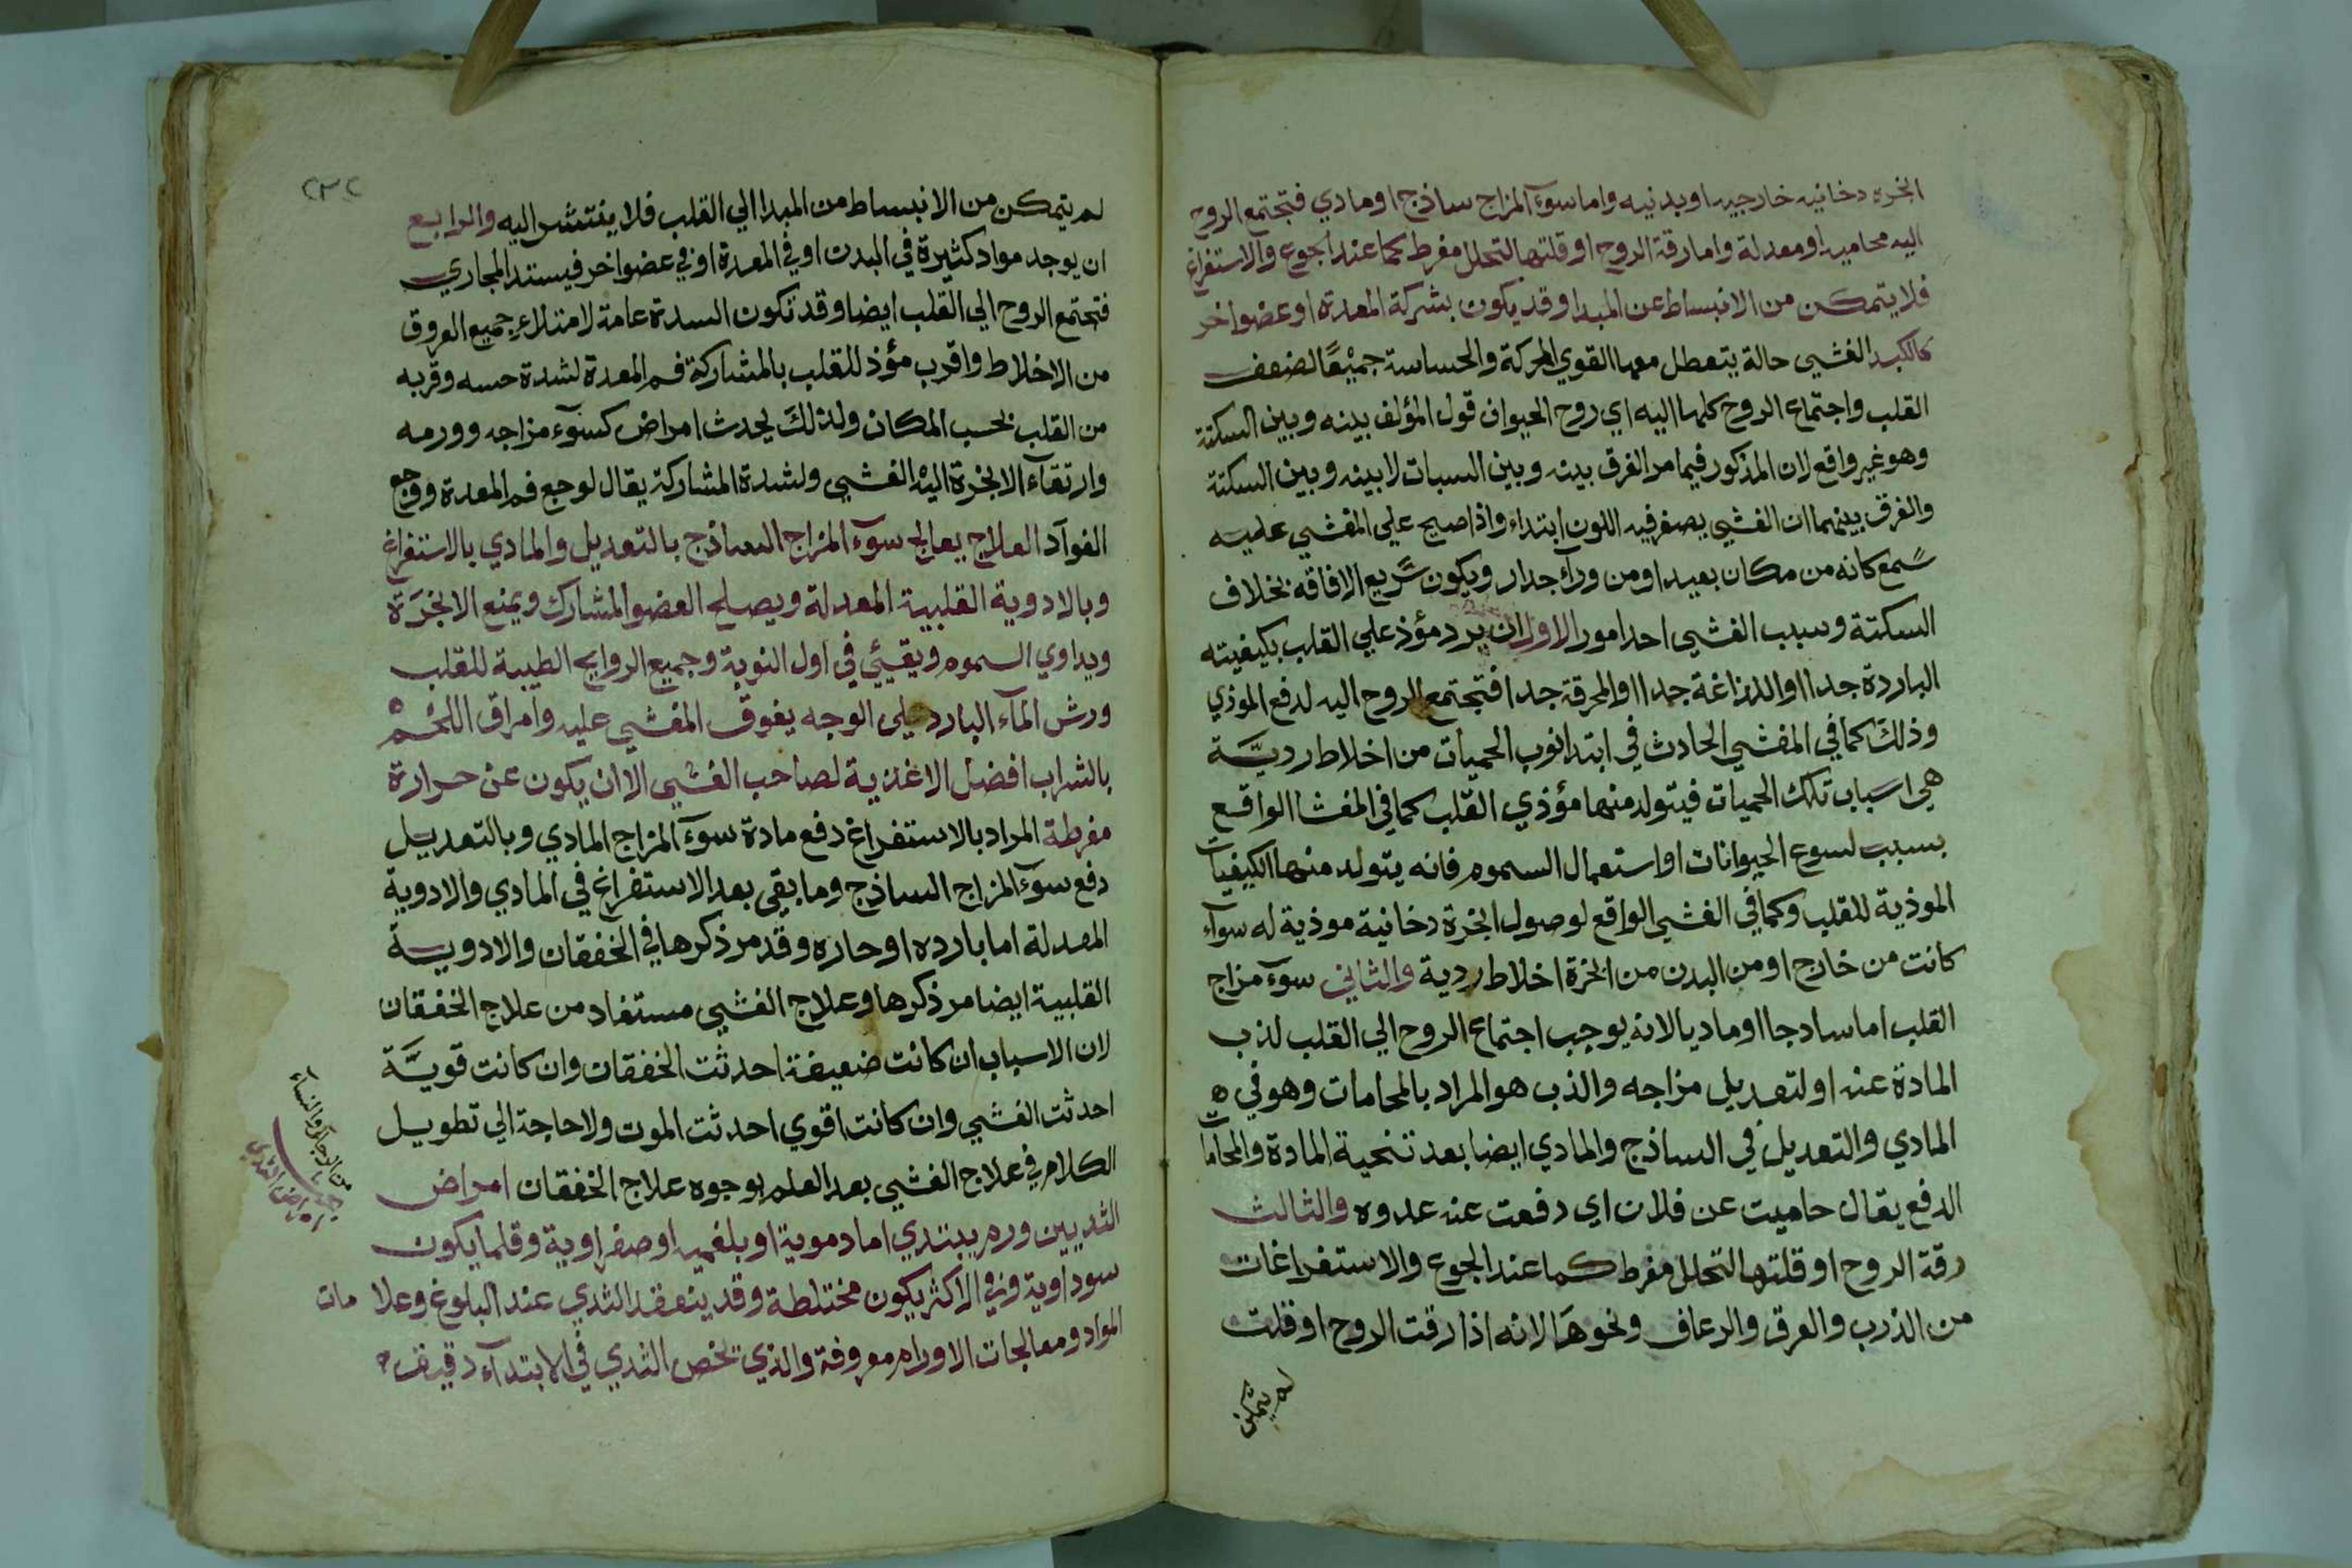 ابخرة دخانيه خارجيه او بدنيه واما سوء المزاج ساذج او مادي فتجتمع الروح
اليه محاميه او معدلة واما رقة الروح او قلتها لتحلل مفرط كما عند الجوع والاستفراغ
فلا يتمكن من الانبساط عن المبدا وقد يكون بشركة المعدة او عضو اخر
كالكبد الغشي حالة يتعطل معها القوي المحركة والحساسة جميعًا لضعف
القلب واجتماع الروح كلها اليه اي روح الحيوان قول المؤلف بينه وبين السكتة
وهو غير واقع لان المذكور فيما مر الفرق بينه وبين السبات لا بينه وبين السكتة
والفرق بينهما ان الغشي يصفر فيه اللون ابتداء واذا صيح علي المغشي عليه
سمع كانه من مكان بعيد او من ورآء جدار ويكون سريع الافاقه بخلاف
السكتة وسبب الغشي احد امور الاول ان يرد مؤذ علي القلب بكيفيته
الباردة جدا او اللذاغة جدا او المحرقة جدا فتجتمع الروح اليه لدفع الموذي
وذلك كما في المغشي الحادث في ابتدا نوب الحميات من اخلاط رديّة
هي اسباب تلك الحميات فيتولد منها مؤذي القلب كما في المغشا الواقع
بسبب لسوع الحيوانات او استعمال السموم فانه يتولد منها الكيفيات
الموذية للقلب وكما في الغشي الواقع لوصول ابخرة دخانية موذية له سوآء
كانت من خارج او من البدن من ابخرة اخلاط ردية والثاني سوء مزاج
القلب اما سادجا او ماديا لانه يوجب اجتماع الروح الي القلب لذب
المادة عنه او لتعديل مزاجه والذب هو المراد بالمحامات وهو في ه
المادي والتعديل في الساذج والمادي ايضا بعد تنحية المادة والمحامات
الدفع يقال حاميت عن فلان اي دفعت عنه عدوه والثالث
رقة الروح او قلتها لتحلل مفرط كما عند الجوع والاستفراغات
من الذرب والعرق والرعاف ونحوها لانه اذا رقت الروح او قلت
لم يتمكن
٢٣٢
لم يتمكن من الانبساط من المبدا الي القلب فلا يفتتش اليه والرابع
ان يوجد مواد كثيرة في البدن او في المعدة او في عضو اخر فيستند المجاري
فتجتمع الروح الي القلب ايضا وقد تكون السدة عامة لامتلاء جميع العروق
من الاخلاط واقرب مؤذ للقلب بالمشاركة فم المعدة لشدة حسه وقربه
من القلب بحسب المكان ولذلك يحدث امراض كسوء مزاجه وورمه
وارتقآء الابخرة اليه الغشي ولشدة المشاركة يقال لوجع فم المعدة ووجع
الفوآد العلاج يعالج سوء المزاج الساذج بالتعديل والمادي بالاستفراغ
وبالادوية القلبية المعدلة ويصلح العضو المشارك ويمنع الابخرة
ويداوي السموم ويقيئي في اول النوبة وجميع الروايح الطيبة للقلب
ورش المآء البارد علي الوجه يفوق المغشي عليه وامراق اللحم ه
بالشراب افضل الاغذية لصاحب الغشي الا ان يكون عن حرارة
مفرطة المراد بالاستفراغ دفع مادة سوء المزاج المادي وبالتعديل
دفع سوء المزاج الساذج وما بقي بعد الاستفراغ في المادي والادوية
المعدلة اما بارده او حاره وقد مر ذكرها في الخفقان والادوية
القلبية ايضا مر ذكرها وعلاج الغشي مستفاد من علاج الخفقان
لان الاسباب ان كانت ضعيفة احدثت الخفقان وان كانت قويَّة
احدثت الغشي وان كانت اقوي احدثت الموت ولا حاجة الي تطويل
الكلام في علاج الغشي بعد العلم بوجوه علاج الخفقان امراض
الثديين ورم يبتدي اما دموية او بلغميه او صفراوية وقلما يكون
سوداوية وفي الاكثر يكون مختلطة وقد ينعقد الثدي عند البلوغ وعلامات
المواد ومعالجات الاورام معروفة والذي يخص الثدي في الابتدآء دقيق
من الرجال والنسآء
امراض الثدي